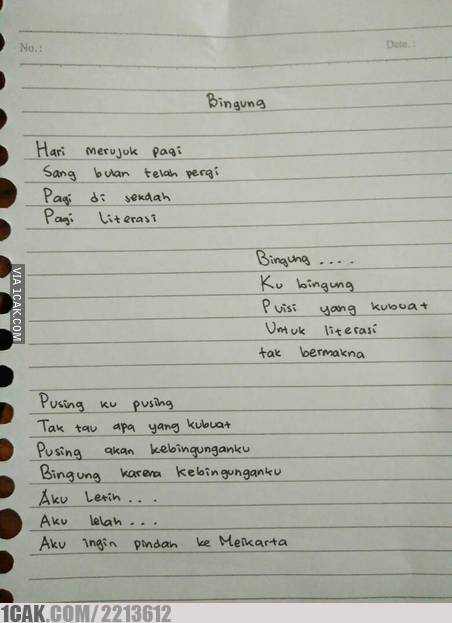 No.:
Date.:
Bingung
Hari merujuk pagi
Sang bulan telah pergi
Pagi di sekolah
Pagi literasi
Bingung ....
Ku bingung
Puisi yang kubuat
Untuk literasi
tak bermakna
Pusing ku pusing
Tak tau apa yang kubuat
Pusing akan kebingunganku
Bingung karena kebingunganku
Aku Letih ...
Aku lelah ...
Aku ingin pindah ke Meikarta
VIA 1CAK.COM
1CAK.COM/2213612